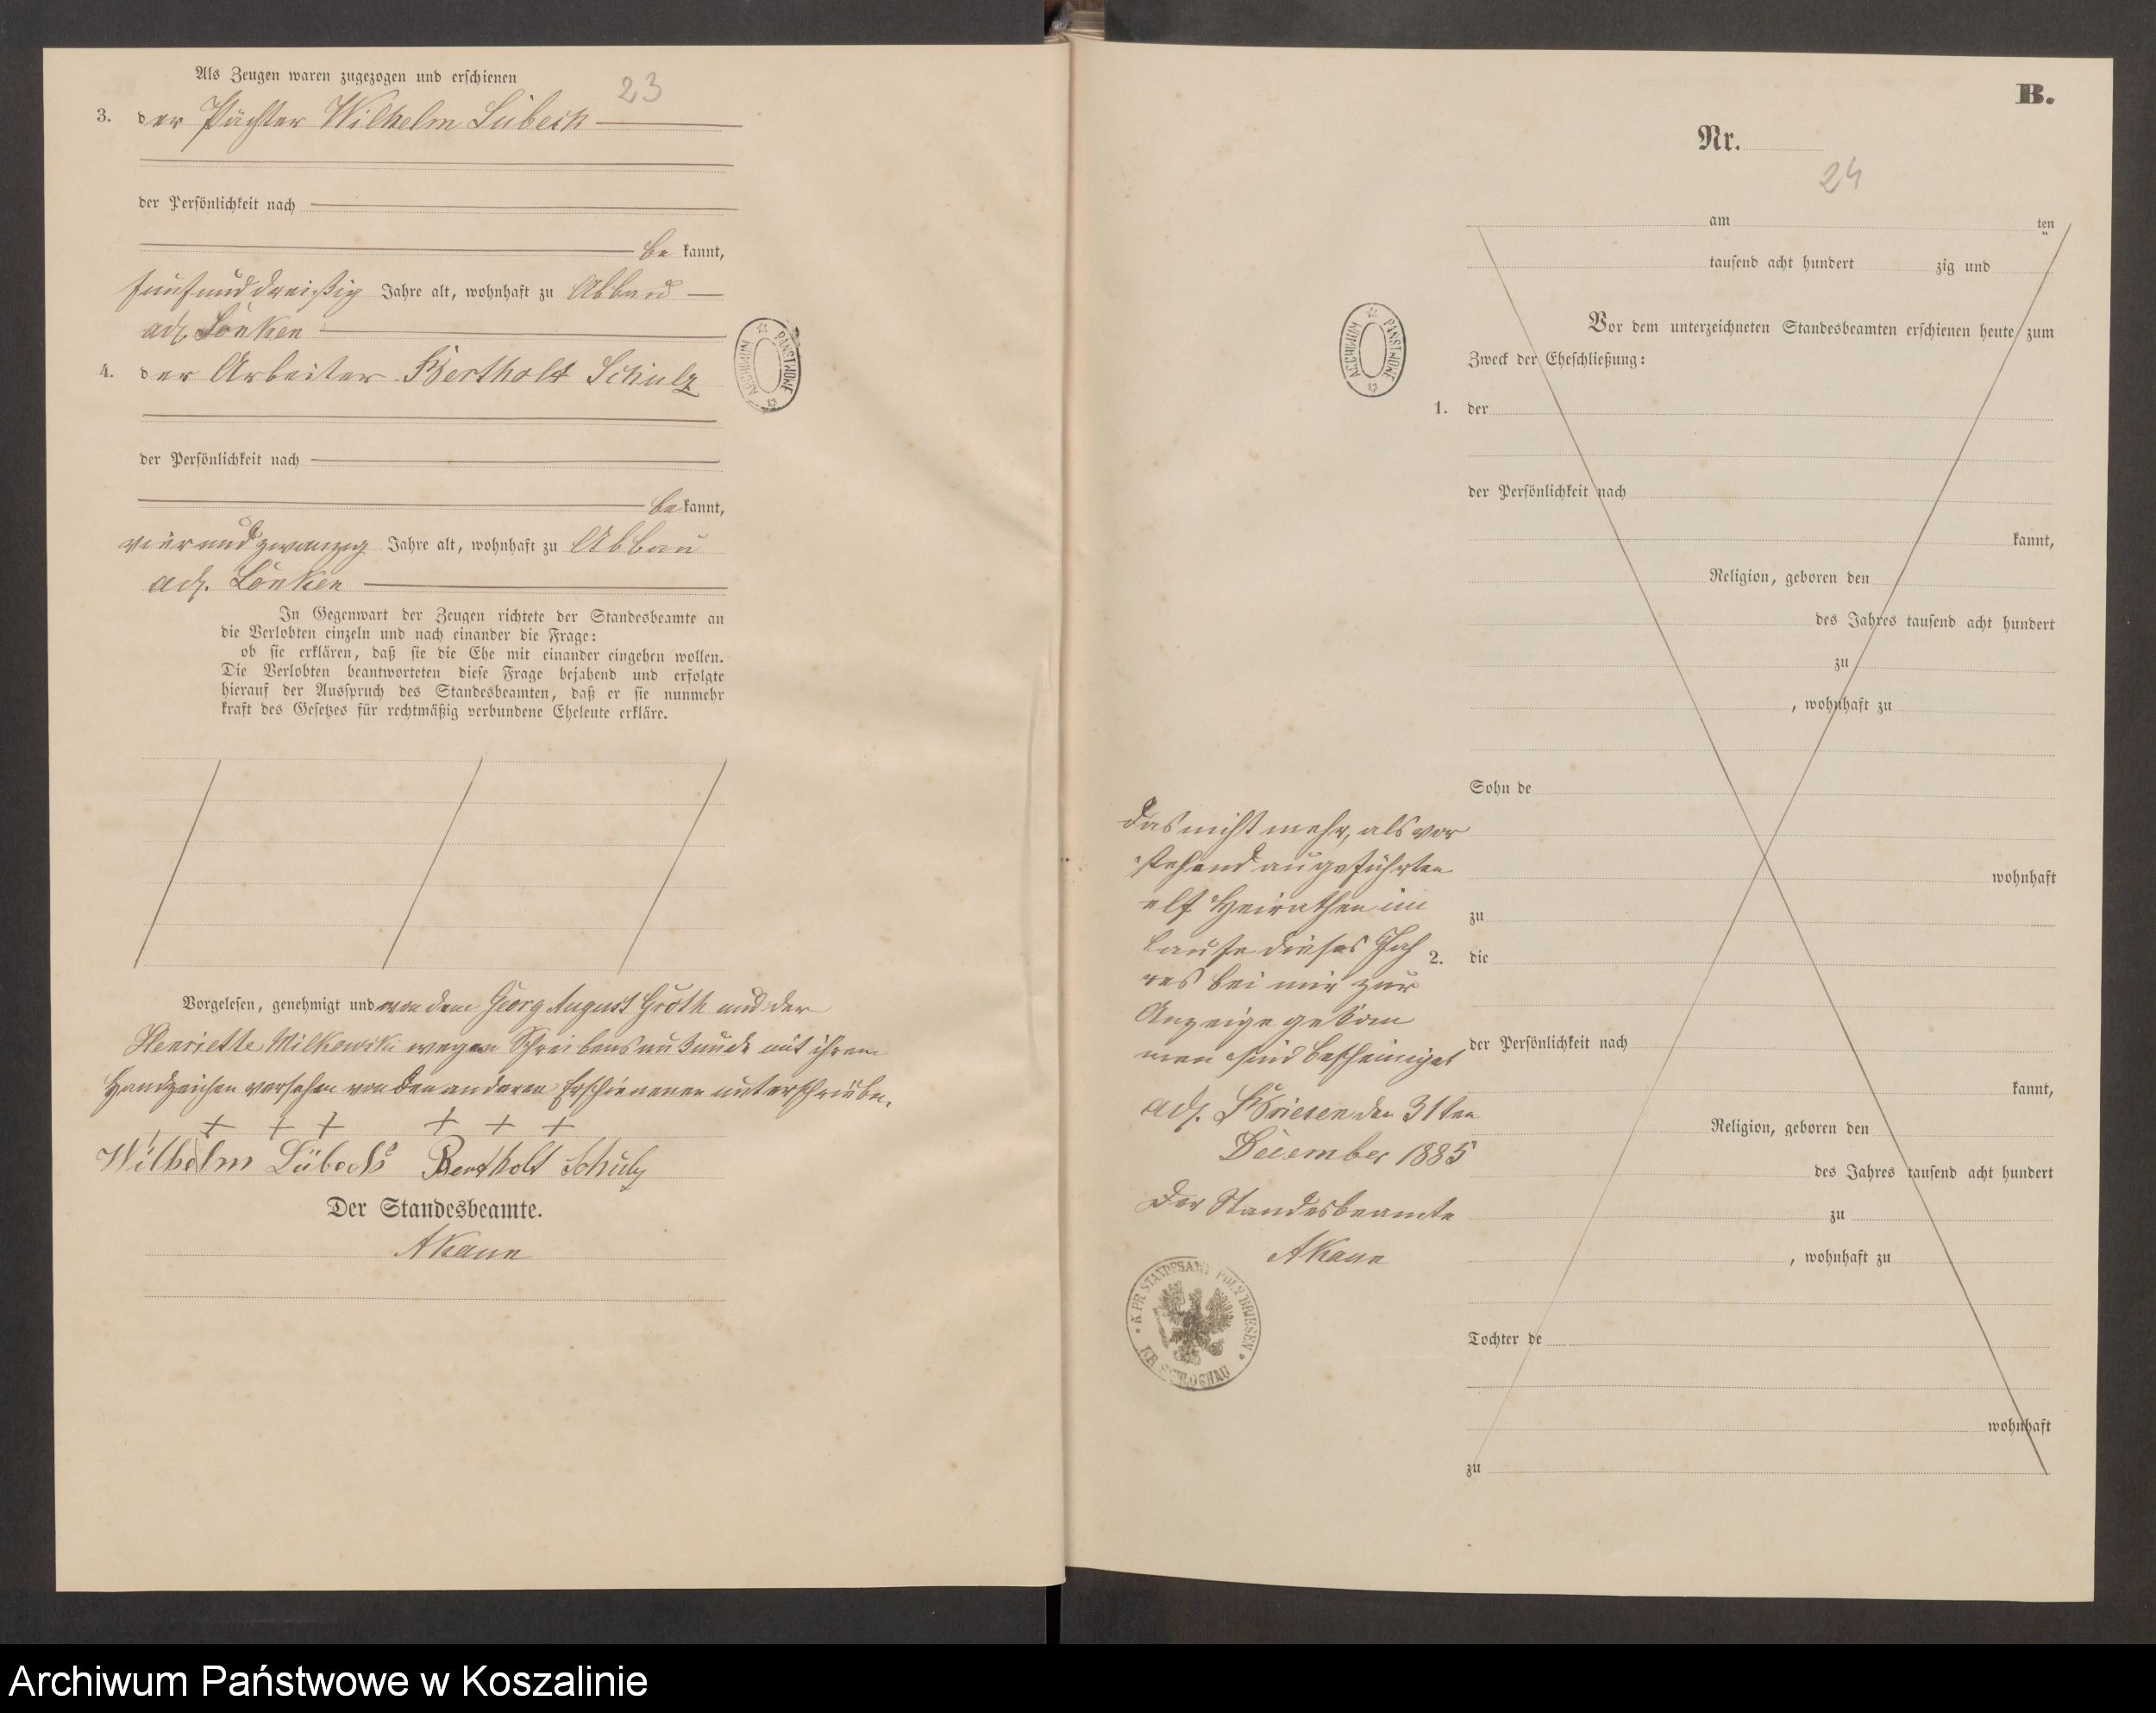 Als Zeugen waren zugezogen und erschienen
23
3. der Pächter Wilhelm Lübeck
der Persönlichkeit nach
be kannt,
fünfunddreißig Jahre alt, wohnhaft zu Abbau
adl. Lönken
4. der Arbeiter Berthold Schulz
der Persönlichkeit nach
be kannt,
vierundzwanzig Jahre alt, wohnhaft zu Abbau
adl. Lönken
In Gegenwart der Zeugen richtete der Standesbeamte an
die Verlobten einzeln und nach einander die Frage:
ob sie erklären, daß sie die Ehe mit einander eingehen wollen.
Die Verlobten beantworteten diese Frage bejahend und erfolgte
hierauf der Ausspruch des Standesbeamten, daß er sie nunmehr
kraft des Gesetzes für rechtmäßig verbundene Eheleute erkläre.
Vorgelesen, genehmigt und von dem Georg August Groth und der
Henriette Milkowski wegen Schreibensunkunde mit ihrem
Handzeichen versehen von den anderen Erschienenen unterschrieben.
+ + + + + +
Wilhelm Lübeck Berthold Schulz
Der Standesbeamte.
A Kaun
ARCHIWUM PAŃSTWOWE
B.
Nr.
24
am ten
tausend acht hundert zig und
Vor dem unterzeichneten Standesbeamten erschienen heute zum
Zweck der Eheschließung:
1. der
der Persönlichkeit nach
kannt,
Religion, geboren den
des Jahres tausend acht hundert
zu
, wohnhaft zu
Sohn de
wohnhaft
zu
2. die
der Persönlichkeit nach
kannt,
Religion, geboren den
des Jahres tausend acht hundert
zu
, wohnhaft zu
Tochter de
wohnhaft
zu
ARCHIWUM PAŃSTWOWE
Das nicht mehr, als vor
stehend angeführten
elf Heirathen im
Laufe dieses Jah
res bei mir zur
Anzeige gekom
men sind bescheiniget
adl. Briesen den 31ten
December 1885
Der Standesbeamte
A Kaun
K. PR. STANDESAMT POLN BRIESEN
KR. SCHLOCHAU
Archiwum Państwowe w Koszalinie